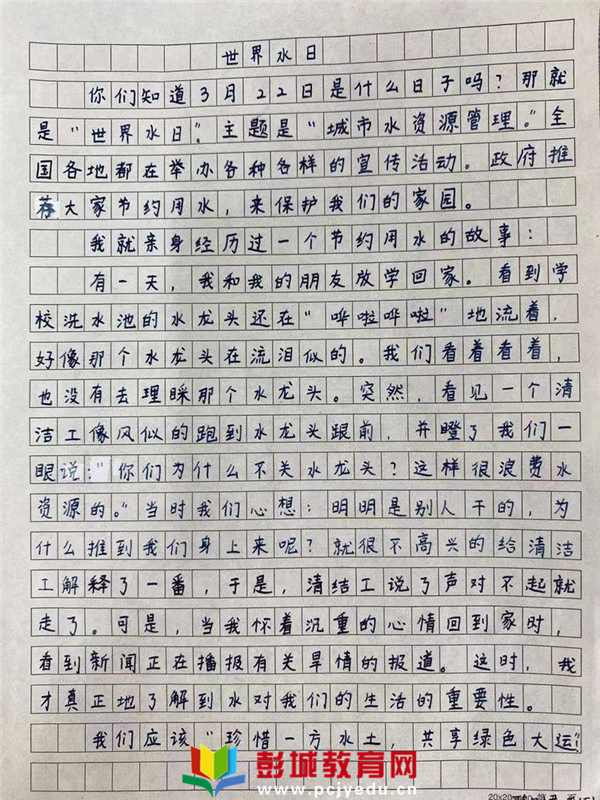 世界水日
你们知道3月22日是什么日子吗？那就
是“世界水日”，主题是“城市水资源管理。”全
国各地都在举办各种各样的宣传活动。政府推
荐大家节约用水，来保护我们的家园。
我就亲身经历过一个节约用水的故事：
有一天，我和我的朋友放学回家。看到学
校洗水池的水龙头还在“哗啦哗啦”地流着，
好像那个水龙头在流泪似的。我们看着看着，
也没有去理睬那个水龙头。突然，看见一个清
洁工像风似的跑到水龙头跟前，并瞪了我们一
眼说：“你们为什么不关水龙头？这样很浪费水
资源的。”当时我们心想：明明是别人干的，为
什么推到我们身上来呢？就很不高兴的给清洁
工解释了一番，于是，清结工说了声对不起就
走了。可是，当我怀着沉重的心情回到家时，
看到新闻正在播报有关旱情的报道。这时，我
才真正地了解到水对我们的生活的重要性。
我们应该“珍惜一方水土，共享绿色大运！
彭城教育网
www.pcjyedu.cn
20x20